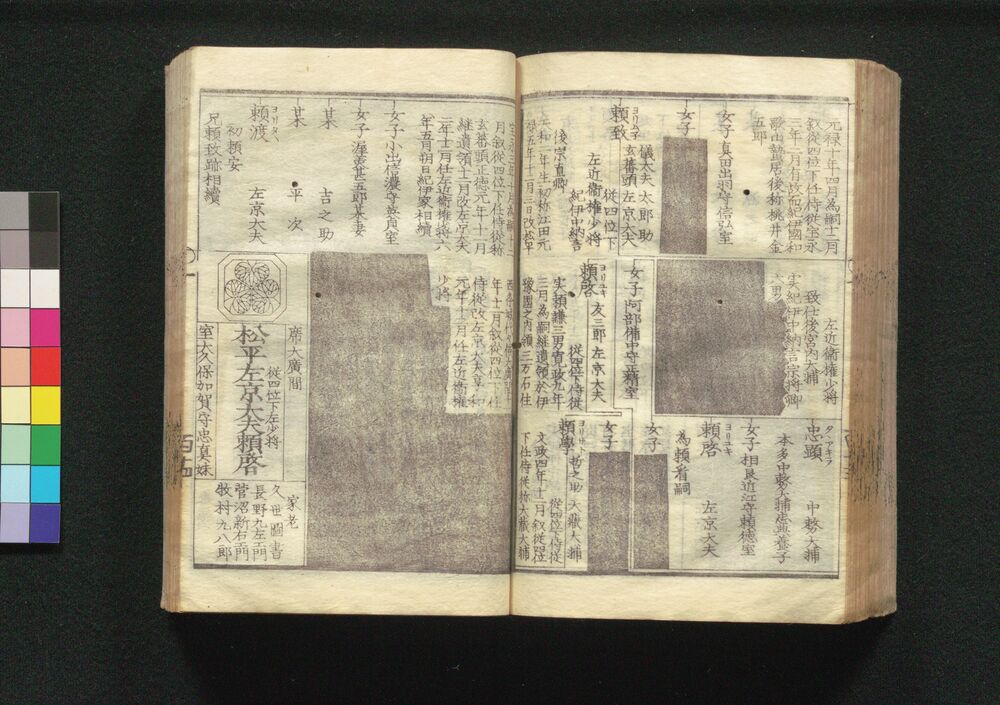 元禄十年四月為嗣十二月
叙従四位下任侍従宝永
三年二月有故而紀伊國和
歌山蟄居後称桃井金
五郎
女子真田出羽守信弘室
女子
頼致
ヨリユキ
儀太夫 太郎助
玄蕃頭 左京大夫
従四位下
左近衛権少将
紀伊中納言
後宗直卿
致仕後宮内大捕
左近衛権少将
実紀伊中納言宗将卿
女子阿部備中守正精室
頼啓
ヨリユキ
友三郎 左京大夫
従四位下侍従
実頼謙三男寛政九年
三月為嗣継遺領於伊
豫國之内領三万石住
忠顕
タヾアキラ
中務大捕
本多中務大捕忠盈養子
女子相良近江守頼徳室
頼啓
ヨリユキ
左京大夫
為頼看嗣
女子
女子
頼學
勅之助 大蔵大捕
従四位下侍従
文政四年十二月叙従四位
下任侍従称大蔵大捕
月叙従四位下任侍従称
玄蕃頭正徳元年十一月
継遺領十二月改左京大夫
二年十二月任左近衛権少将六
年五月朔日紀伊家相續
女子小出信濃守英貞室
女子渥美甚五郎某妻
某
吉之助
某
平次
頼渡
ヨリタヾ
左京大夫
初頼安
兄頼致跡相續
年十二月叙従四位下
侍従改左京大夫享和
元年十二月任左近衛権
少将
席大廣間
従四位下左少将
松平左京大夫頼啓
室大久保加賀守忠真妹
家老
久世圖書
長野九左エ門
菅沼新右エ門
牧村九八郎